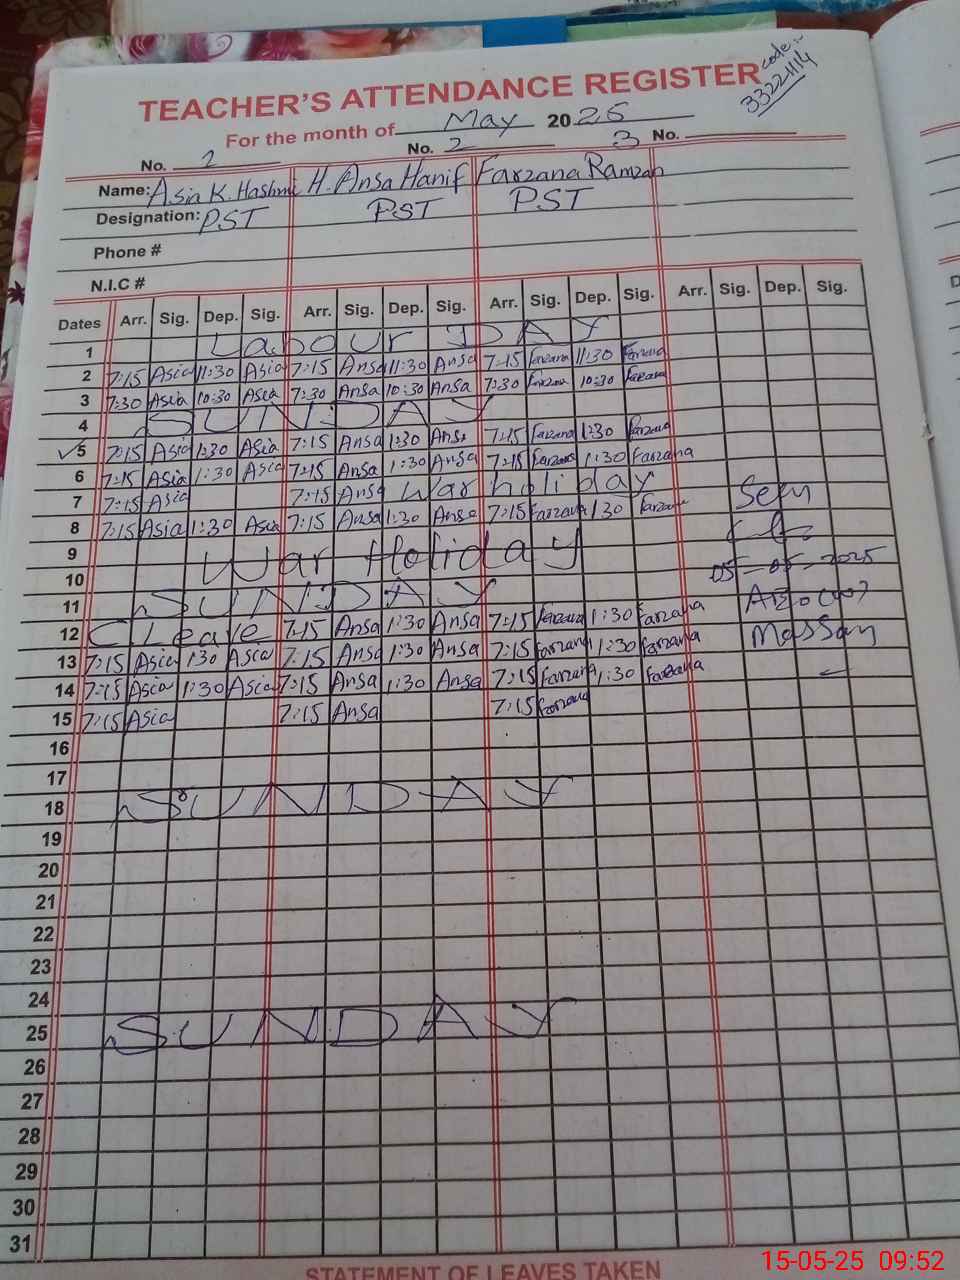 code:
33221114
TEACHER'S ATTENDANCE REGISTER
For the month of May 2025
No. 1 No. 2 3 No.
Name: Asia K. Hashmi H. Ansa Hanif Farzana Ramzan
Designation: PST PST PST
Phone #
N.I.C #
Dates Arr. Sig. Dep. Sig. Arr. Sig. Dep. Sig. Arr. Sig. Dep. Sig. Arr. Sig. Dep. Sig.
1 Labour DAY
2 7:15 Asia 11:30 Asia 7:15 Ansa 11:30 Ansa 7:15 Farzana 11:30 Farzana
3 7:30 Asia 10:30 Asia 7:30 Ansa 10:30 Ansa 7:30 Farzana 10:30 Farzana
4 SUNDAY
5 7:15 Asia 1:30 Asia 7:15 Ansa 1:30 Ansa 7:15 Farzana 1:30 Farzana
6 7:15 Asia 1:30 Asia 7:15 Ansa 1:30 Ansa 7:15 Farzana 1:30 Farzana
7 7:15 Asia 7:15 Ansa War holiday
8 7:15 Asia 1:30 Asia 7:15 Ansa 1:30 Ansa 7:15 Farzana 1 30 Farzana
Seen
9 War Holiday
10
05-05-2025
11 SUNDAY
12 C Leave 7:15 Ansa 1:30 Ansa 7:15 Farzana 1:30 Farzana
13 7:15 Asia 1:30 Asia 7:15 Ansa 1:30 Ansa 7:15 Farzana 1:30 Farzana
14 7:15 Asia 1:30 Asia 7:15 Ansa 1:30 Ansa 7:15 Farzana 1:30 Farzana
15 7:15 Asia 7:15 Ansa 7:15 Farzana
16
17
18 SUNDAY
19
20
21
22
23
24
25 SUNDAY
26
27
28
29
30
31
STATEMENT OF LEAVES TAKEN
15-05-25 09:52